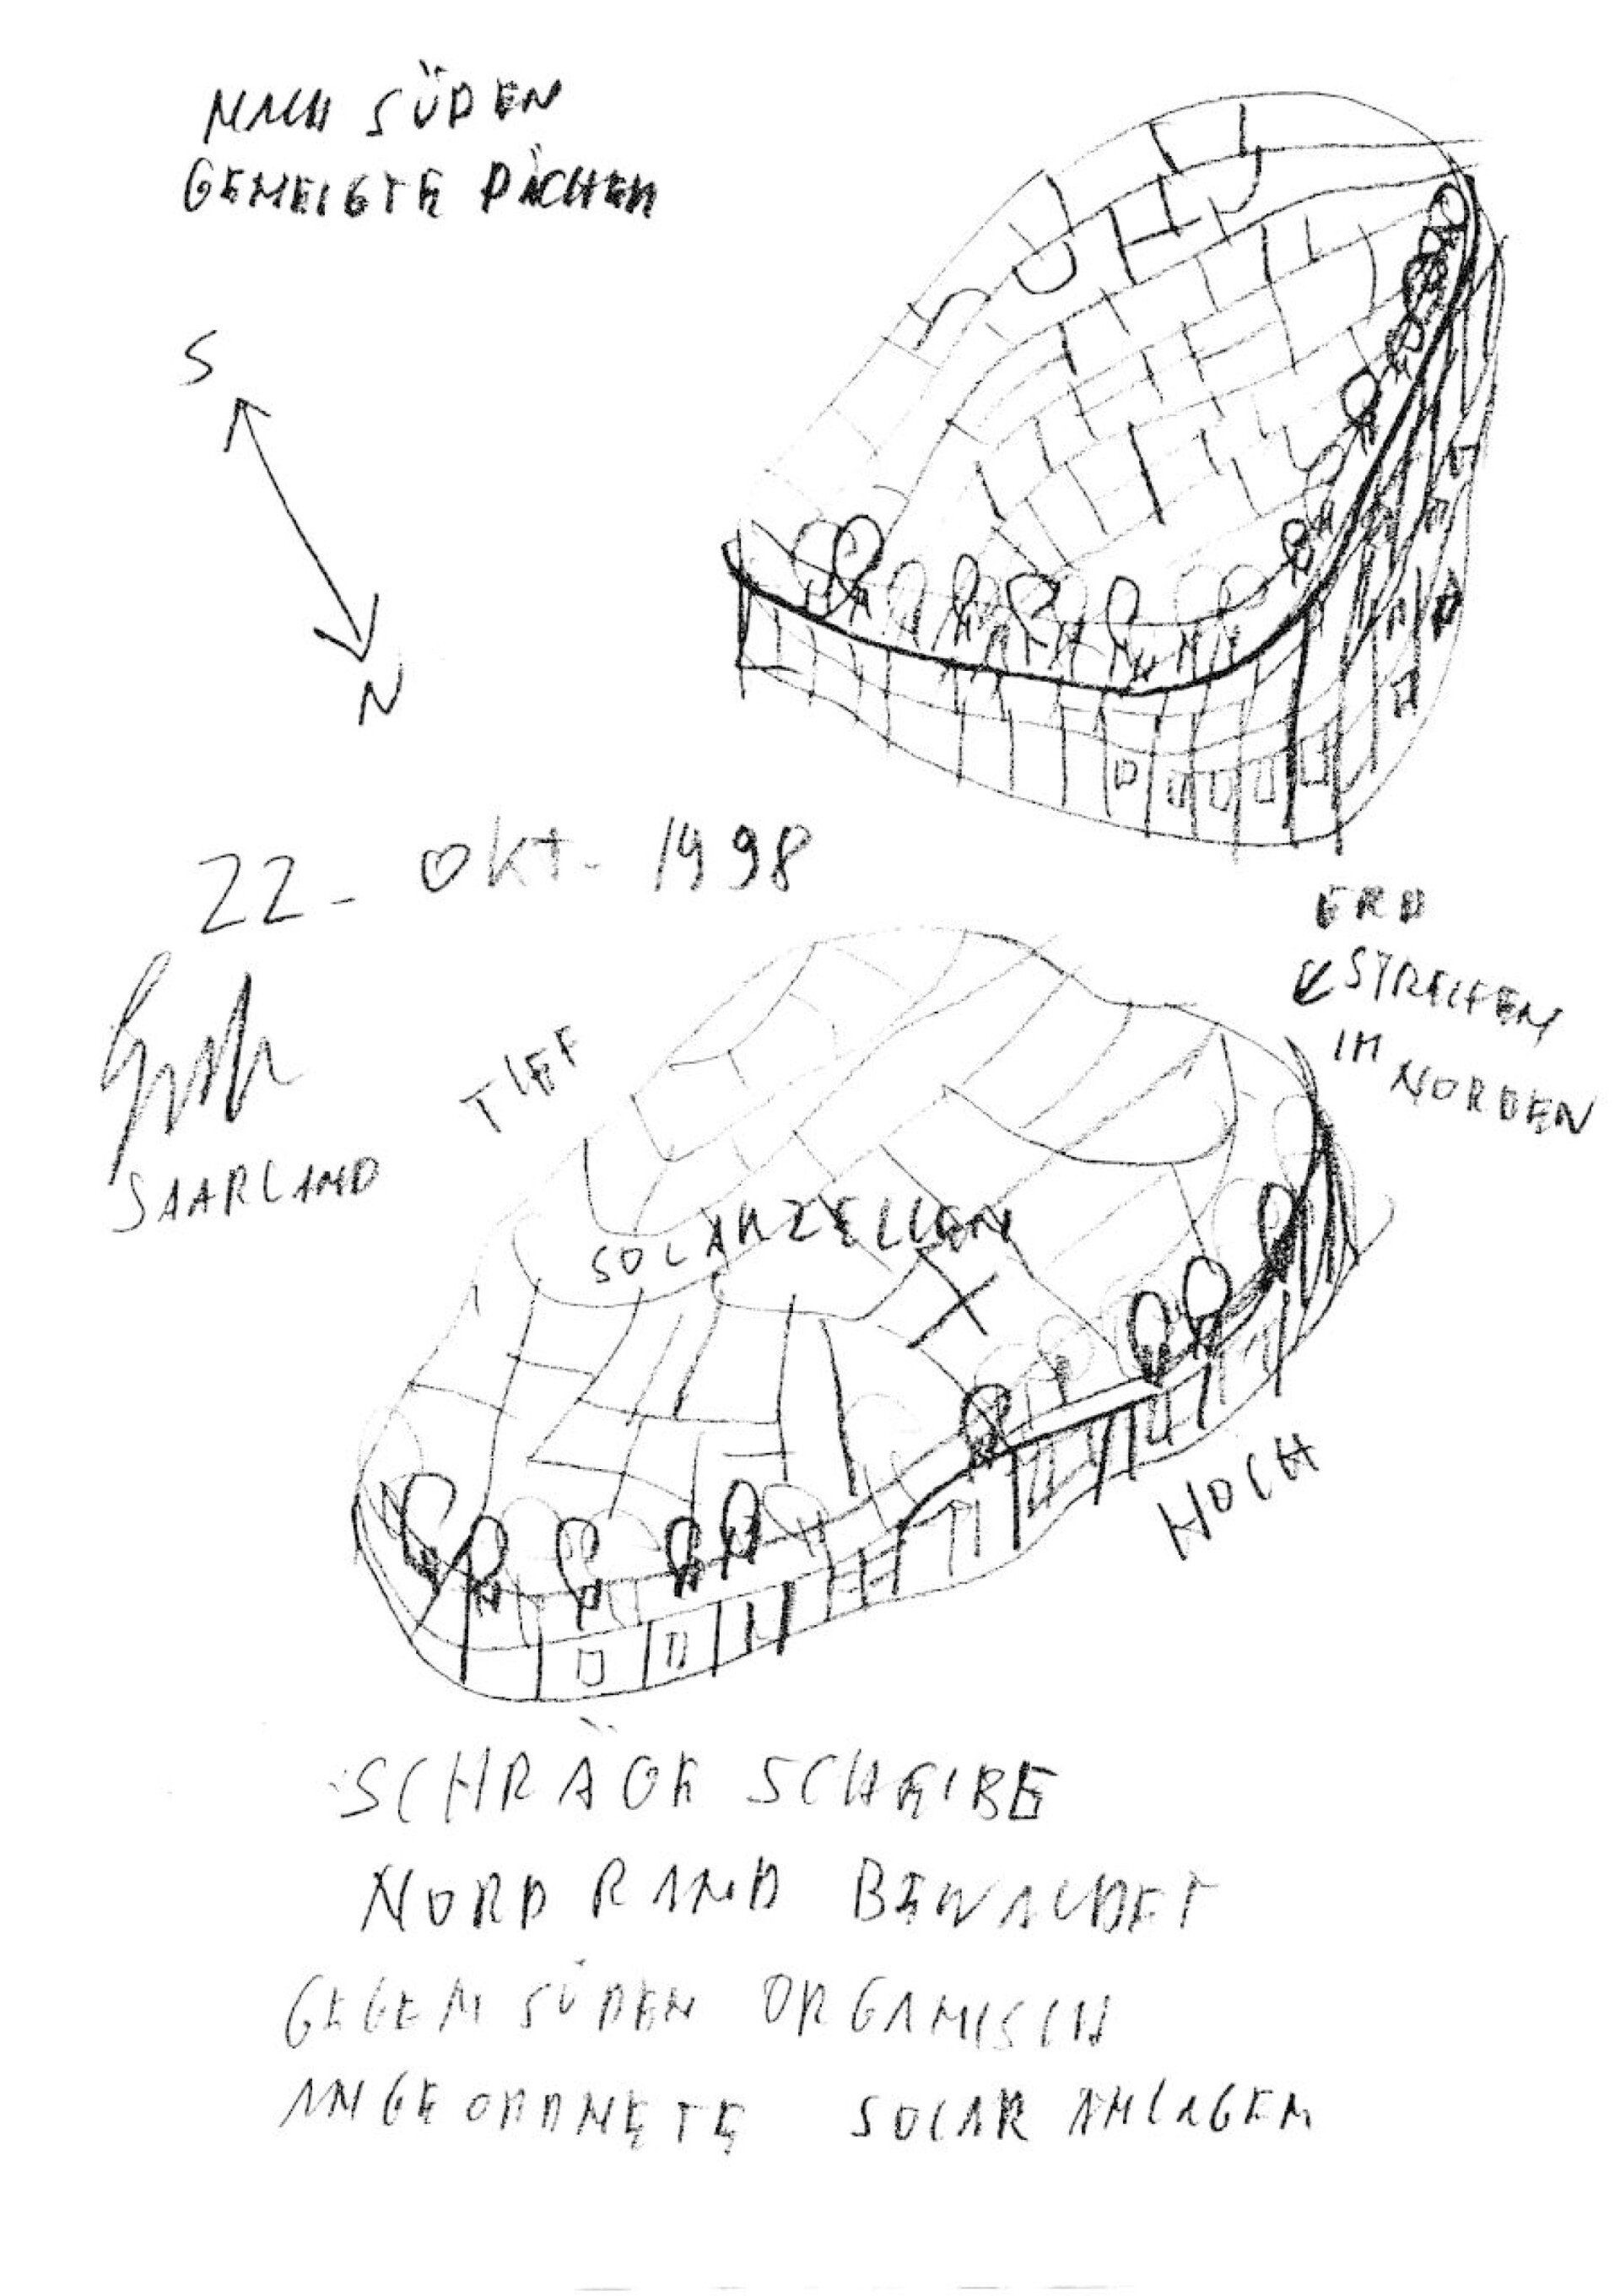 NACH SÜDEN
GENEIGTE DÄCHER
S
N
22. OKT. 1998
SAARLAND
ERD
STREIFEN
IM NORDEN
TIEF
SOLARZELLEN
HOCH
SCHRÄGE SCHEIBE
NORD RAND BEWALDET
GEGEN SÜDEN ORGANISCH
ANGEORDNETE SOLAR ANLAGEN